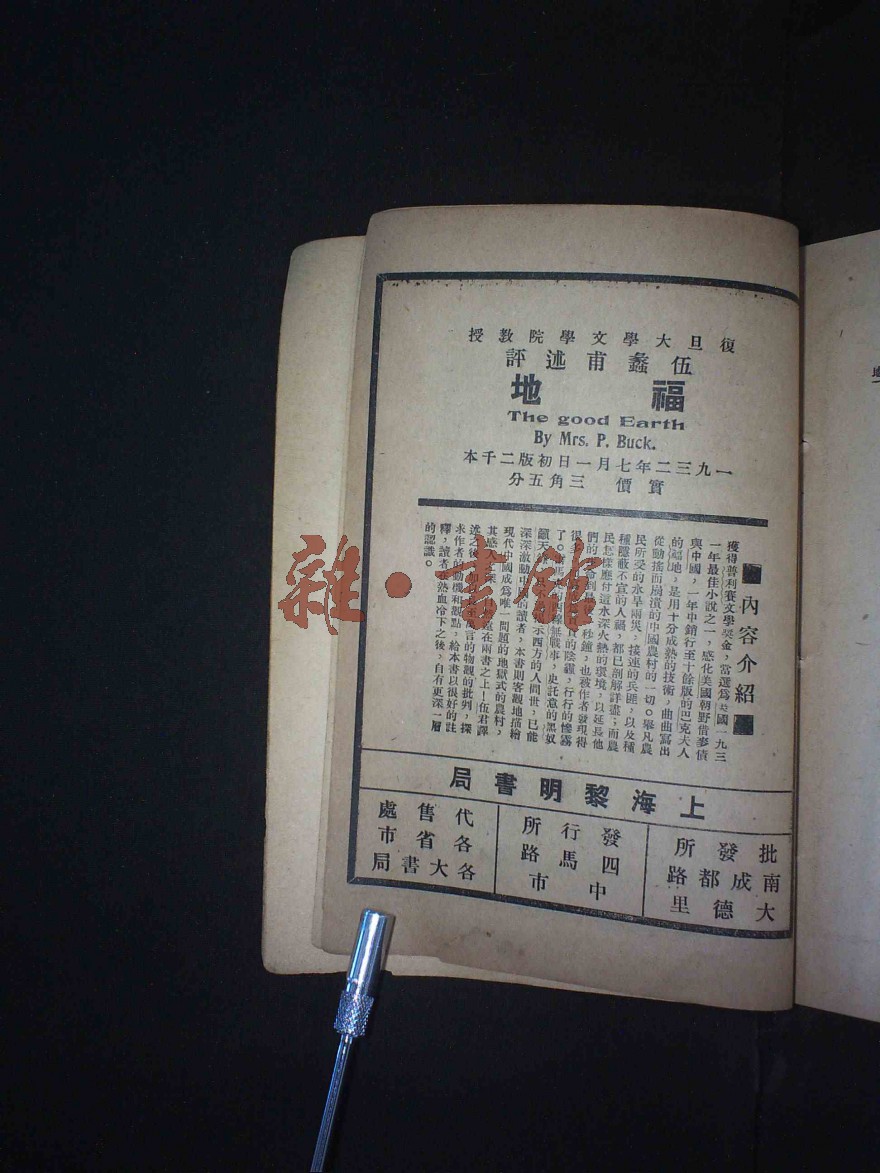 復旦大學文學院教授
伍蠡甫述評
福地
The good Earth
By Mrs. P. Buck.
一九三二年七月一日初版二千本
實價 三角五分
內容介紹
獲得普利賽文學獎金，當選爲美國一九三
一年最佳小說之一，感化美國朝野借麥債
與中國，一年中銷行至十餘版的巴克夫人
的福地，是用十分成熟的技術，曲曲寫出
從動搖而崩潰的中國農村的一切。舉凡農
民所受的水旱兩災，接連的兵匪，以及種
種隱蔽不宣的人禍，都已剖解詳盡；而農
民怎樣應付這水深火熱的環境，以延長他
們的 秒鐘，也被作者發現得
很 的陰霾，行行的慘霧
了。 西線無戰事，史託意的黑奴
籲天 示西方的人間世，已能
深深激動中 的讀者，本書則客觀地描繪
現代中國成爲唯一問題的地獄式的農村，
其感人之深， 在兩書之上！伍君譯
述之後， 言的物觀的批判，探
求作者的動機和觀點，給本書以很好的註
釋，讀者在熱血冷下之後，自有更深一層
的認識。
上海黎明書局
批發所
南成都路
大德里
發行所
四馬路
中市
代售處
各省市
各大書局
雜·書館